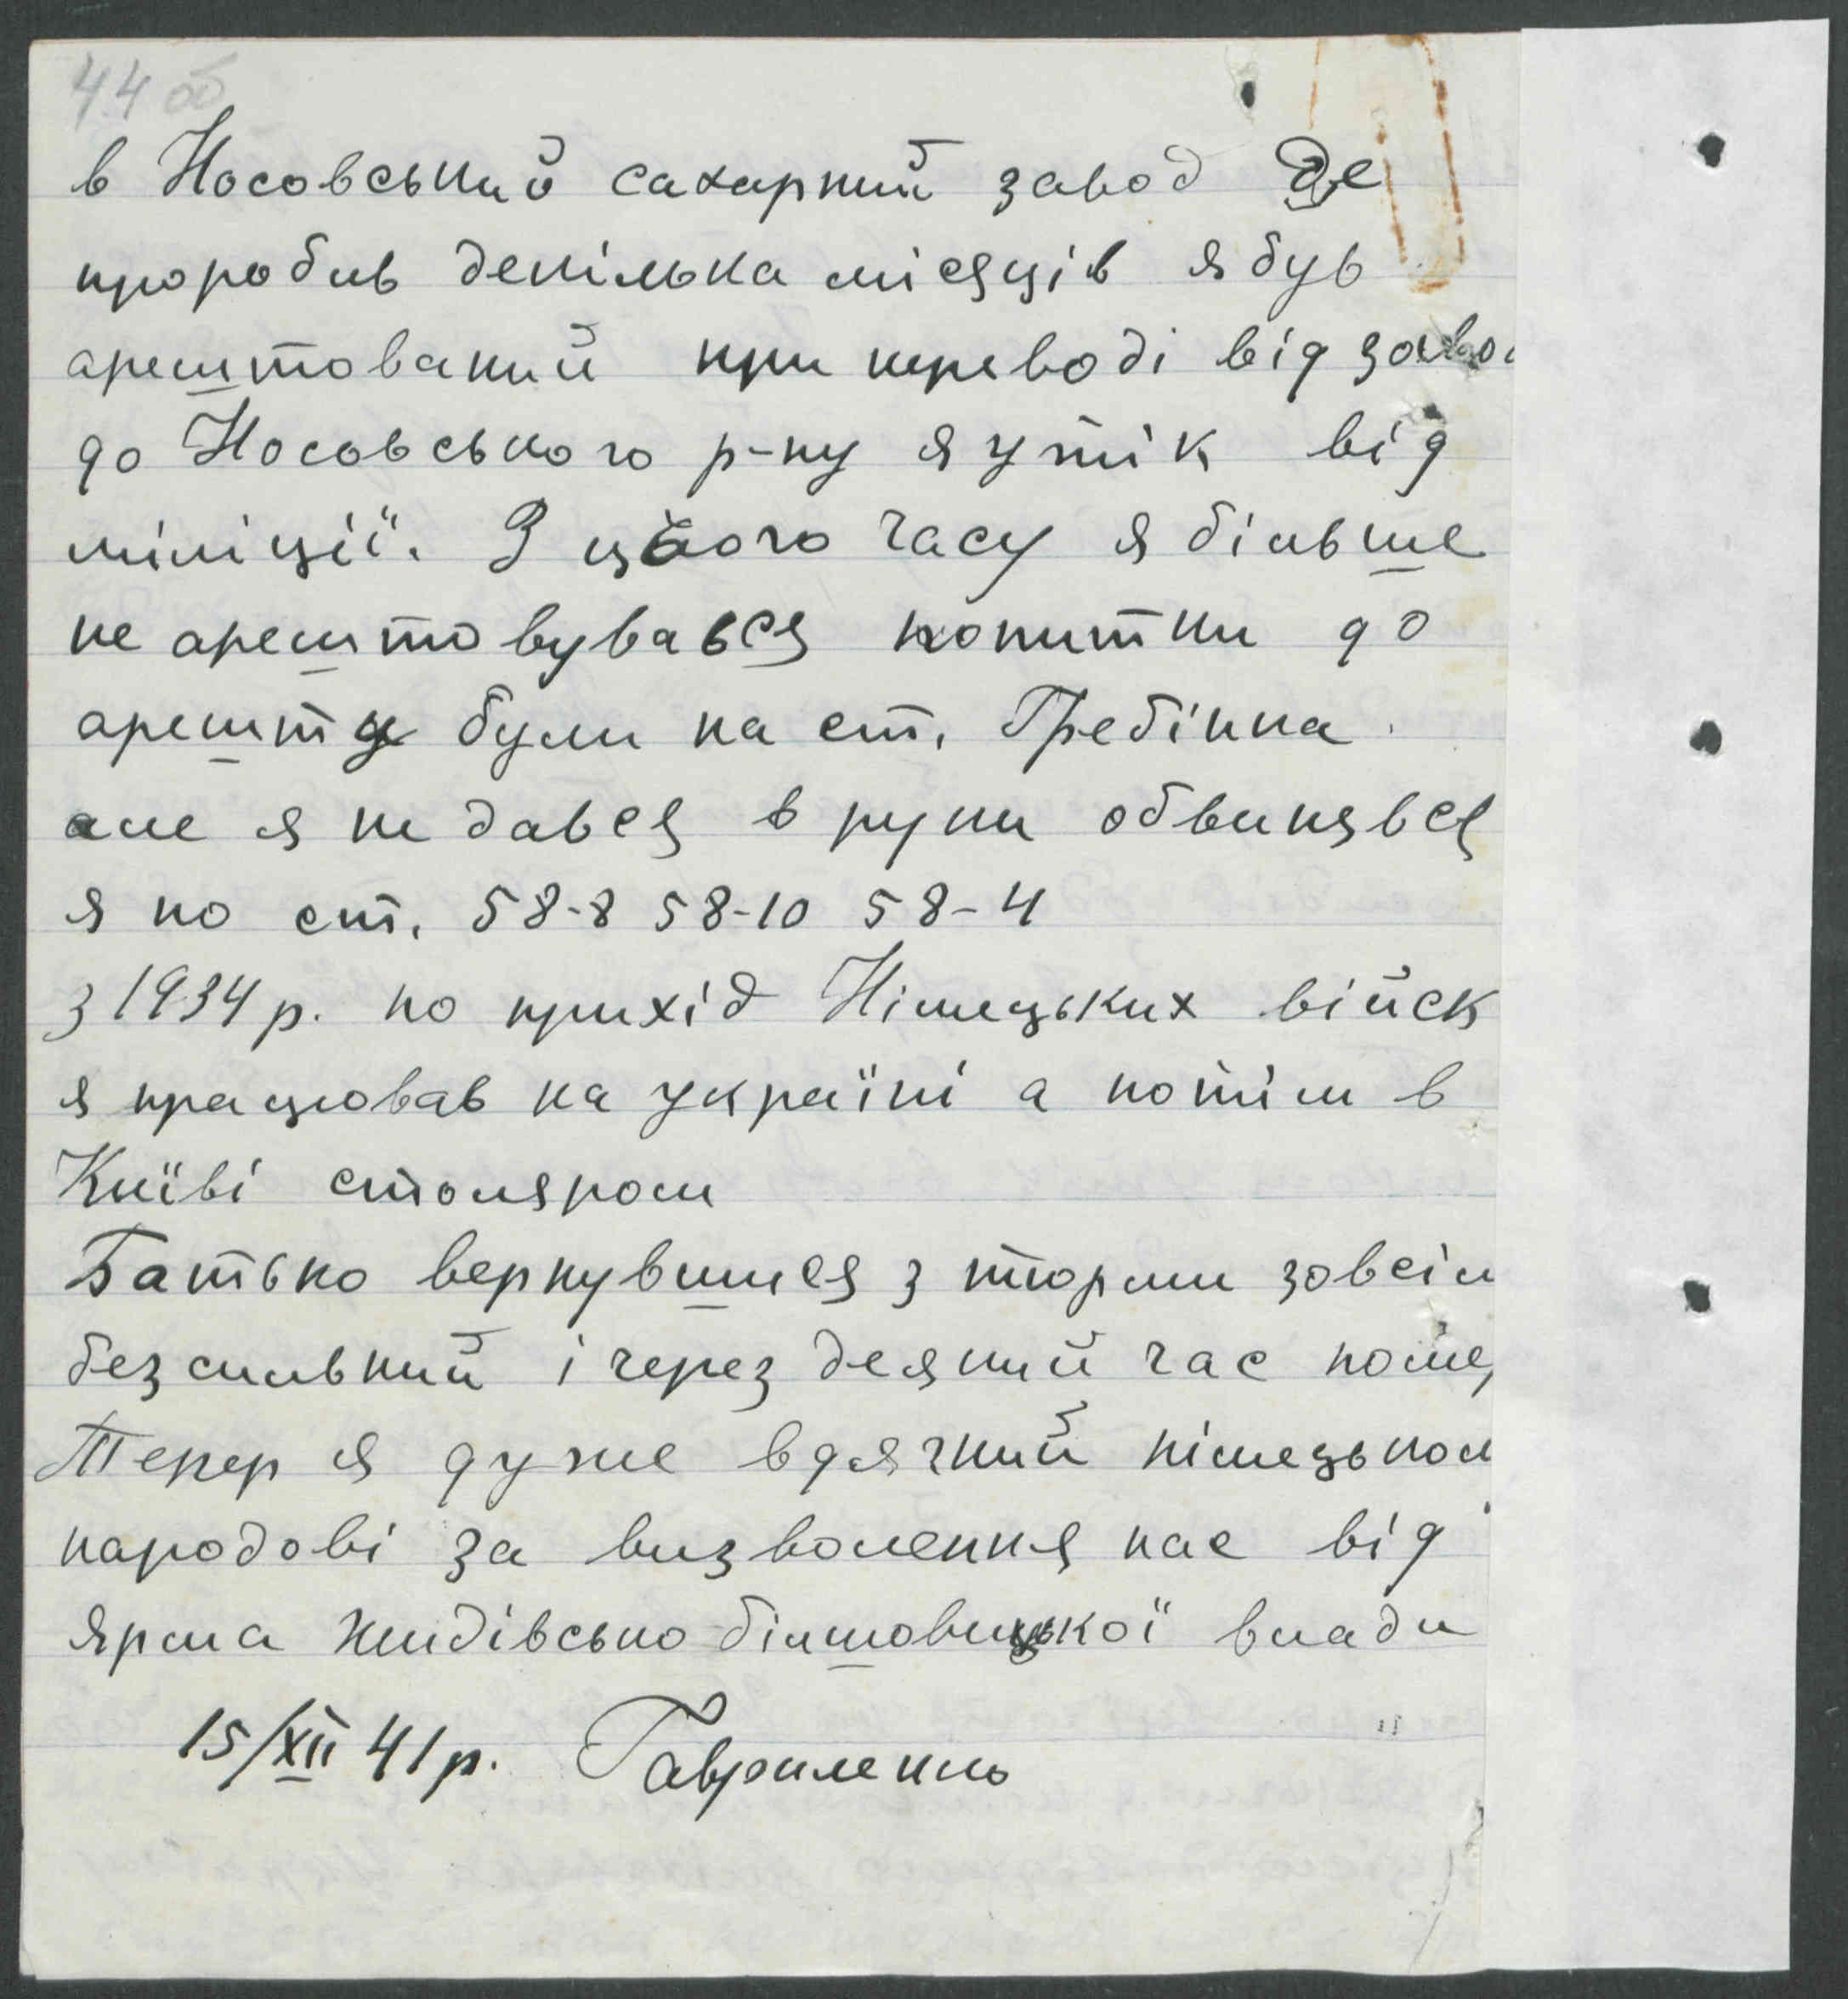 44 об
в Носовський сахарний завод Де
проробив декілька місяців я був
арештований при переводі від заво
до Носовського р-ну я утік від
міліції. З цього часу я більше
не арештовувався попитки до
арешту були на ст. Гребінка.
але я не дався в руки обвинявся
я по ст. 58-8 58-10 58-4
з 1934 р. по прихід Німецьких військ
я працював на україні а потім в
Київі столяром
Батько вернувшися з тюрми зовсім
безсильний і через деякий час поме
Тепер я дуже вдячний німецьком
народові за визволення нас від
ярма жидівсько більшовицької влади
15/XII 41 р. Гавриленко